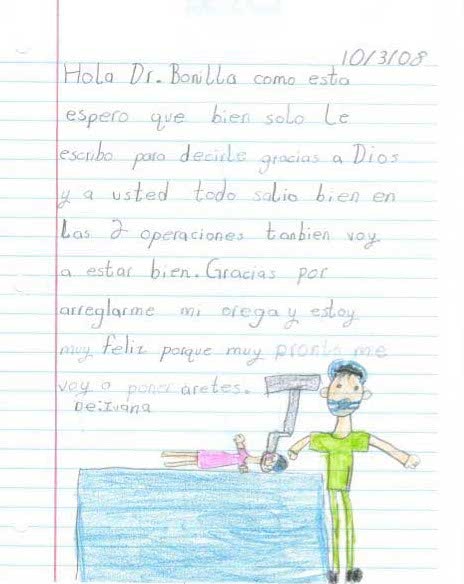 10/3/08
Hola Dr. Bonilla como esta
espero que bien solo Le
escribo para decirle gracias a Dios
y a usted todo salio bien en
Las 2 operaciones tanbien voy
a estar bien. Gracias por
arreglarme mi orega y estoy
muy feliz porque muy pronto me
voy a poner aretes.
De: Ivana